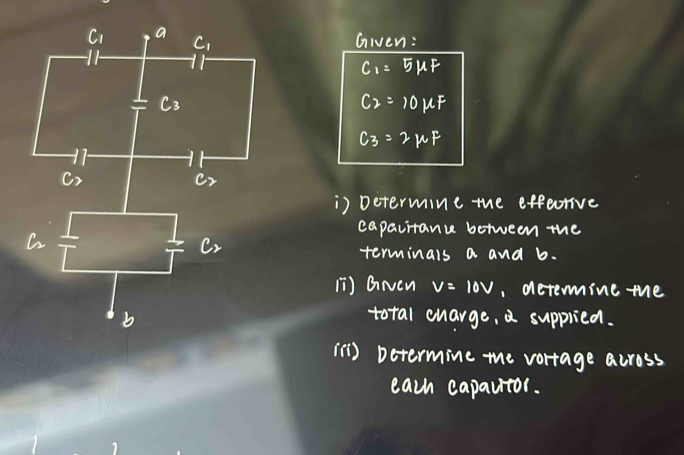 C1 a C1
C3
C2 C2
C2 C2
b
Given:
C1 = 5 μF
C2 = 10 μF
C3 = 2 μF
i) Determine the effective
capacitance between the
terminals a and b.
ii) Given V = 10V, determine the
total charge, Q supplied.
iii) Determine the voltage across
each capacitor.